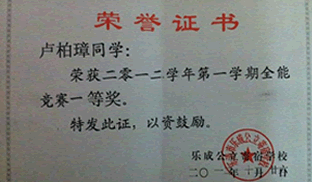 荣誉证书
卢柏璋同学：
荣获二零一二学年第一学期全能
竞赛一等奖。
特发此证，以资鼓励。
乐成公立寄宿学校
二〇一 年 月 日